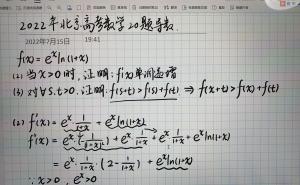 2022年北京高考数学20题导数.
2022年7月15日 19:41
f(x)=eˣln(1+x)
(2)当x>0时,证明:f'(x)单调递增
(3)对∀s.t>0.证明:f(s+t)>f(s)+f(t) ⇒ f(x+t)>f(x)+f(t)
(2) f'(x)=eˣ·1/(1+x)+eˣln(1+x)
f''(x)=eˣ(-1/(1+x)²)+eˣ·1/(1+x)+eˣ·1/(1+x)+eˣln(1+x)
=eˣ·1/(1+x)·(2-1/(1+x))+eˣln(1+x)
∵x>0, eˣ>0